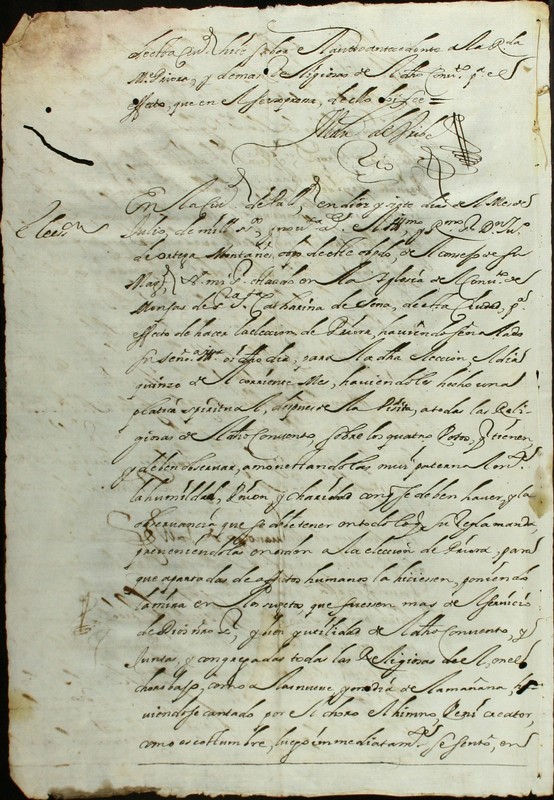 de esta Ciu.d hice saber el auto antecedente a la R.da
M.e Priora, y demas Religiosas de el dho Conv.to p.a el
effecto, que en el se expresa, de ello doi fee =
Juan de
Elecc.n
En la Ciu.d de Vall.d, en dies y siete dias de el Mes de
Julio, de mill s.s y nov.ta El Ill.mo y R.mo S.r D.n Ju.o
de ortega Montañes, obpo de este obpdo, de el consejo de su
Mag.d estando en la Yglesia de el Conv.to de
Monjas de S.ta Catharina de Sena, de esta Ciudad, p.a
effeto de hacer la eleccion de Priora, haviendo señalado
su señ.a Ill.ma dho dia, para la dha eleccion, el dia
quinze de el corriente Mes, haviendoles hecho una
platica espiritual, despues de la Visita, a todas las Reli-
giosas de el dho Convento sobre los quatro Votos, q tienen,
y deben observar, amonestandolas mui paternalm.te
la humildad, Union, y charidad con q se deben haver, y la
observancia que se debe tener en todo lo q su Regla manda,
previniendolas en orden a la eleccion de Priora, para
que apartadas de affectos humanos la hiciesen, poniendo
la mira en los sugetos que fuessen mas de el servicio
de Dios nro S.r, y bien y utilidad de el dho Convento, y
Juntas, y congregadas todas las Religiosas de el, en el
choro baxo, como a las nueve y media de la mañana, ha-
viendose cantado por el choro el himno, Veni creator,
como es costumbre, luego immediatam.te se sentó, en